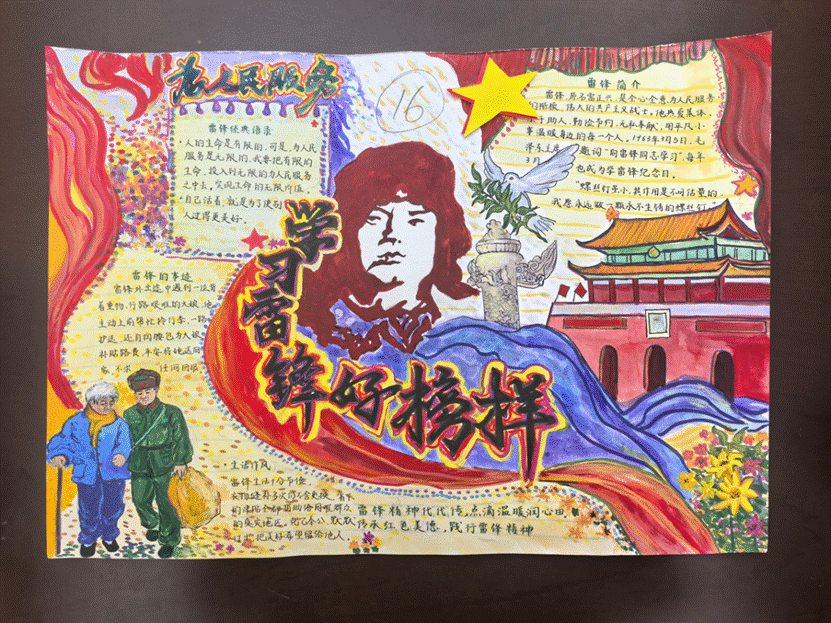 为人民服务
16
雷锋经典语录
·人的生命是有限的,可是,为人民
服务是无限的,我要把有限的
生命,投入到无限的为人民服务
之中去,实现生命的无限价值。
·自己活着,就是为了使别
人过得更美好。
雷锋简介
雷锋,原名雷正兴,是全心全意为人民服务
的楷模,伟人的共产主义战士,他热爱集体,
于助人,勤俭节约,无私奉献,用平凡小
事温暖身边的每一个人。1963年3月5日,毛
泽东主席 题词“向雷锋同志学习”,每年
3月 也成为学雷锋纪念日。
“螺丝钉虽小,其作用是不可估量的,
我愿永远做一颗永不生锈的螺丝钉
学习雷锋好榜样
雷锋的事迹
雷锋外出途中遇到一位背
着重物、行路艰难的大娘,他
主动上前帮忙拎行李,一路
护送,还自掏腰包为大娘
补贴路费,平安将她送回
家,不求 任何回报
·生活作风
雷锋生活十分节俭,
衣物缝补多次
雷锋精神代代传,点滴温暖润心田
传承红色美德,践行雷锋精神